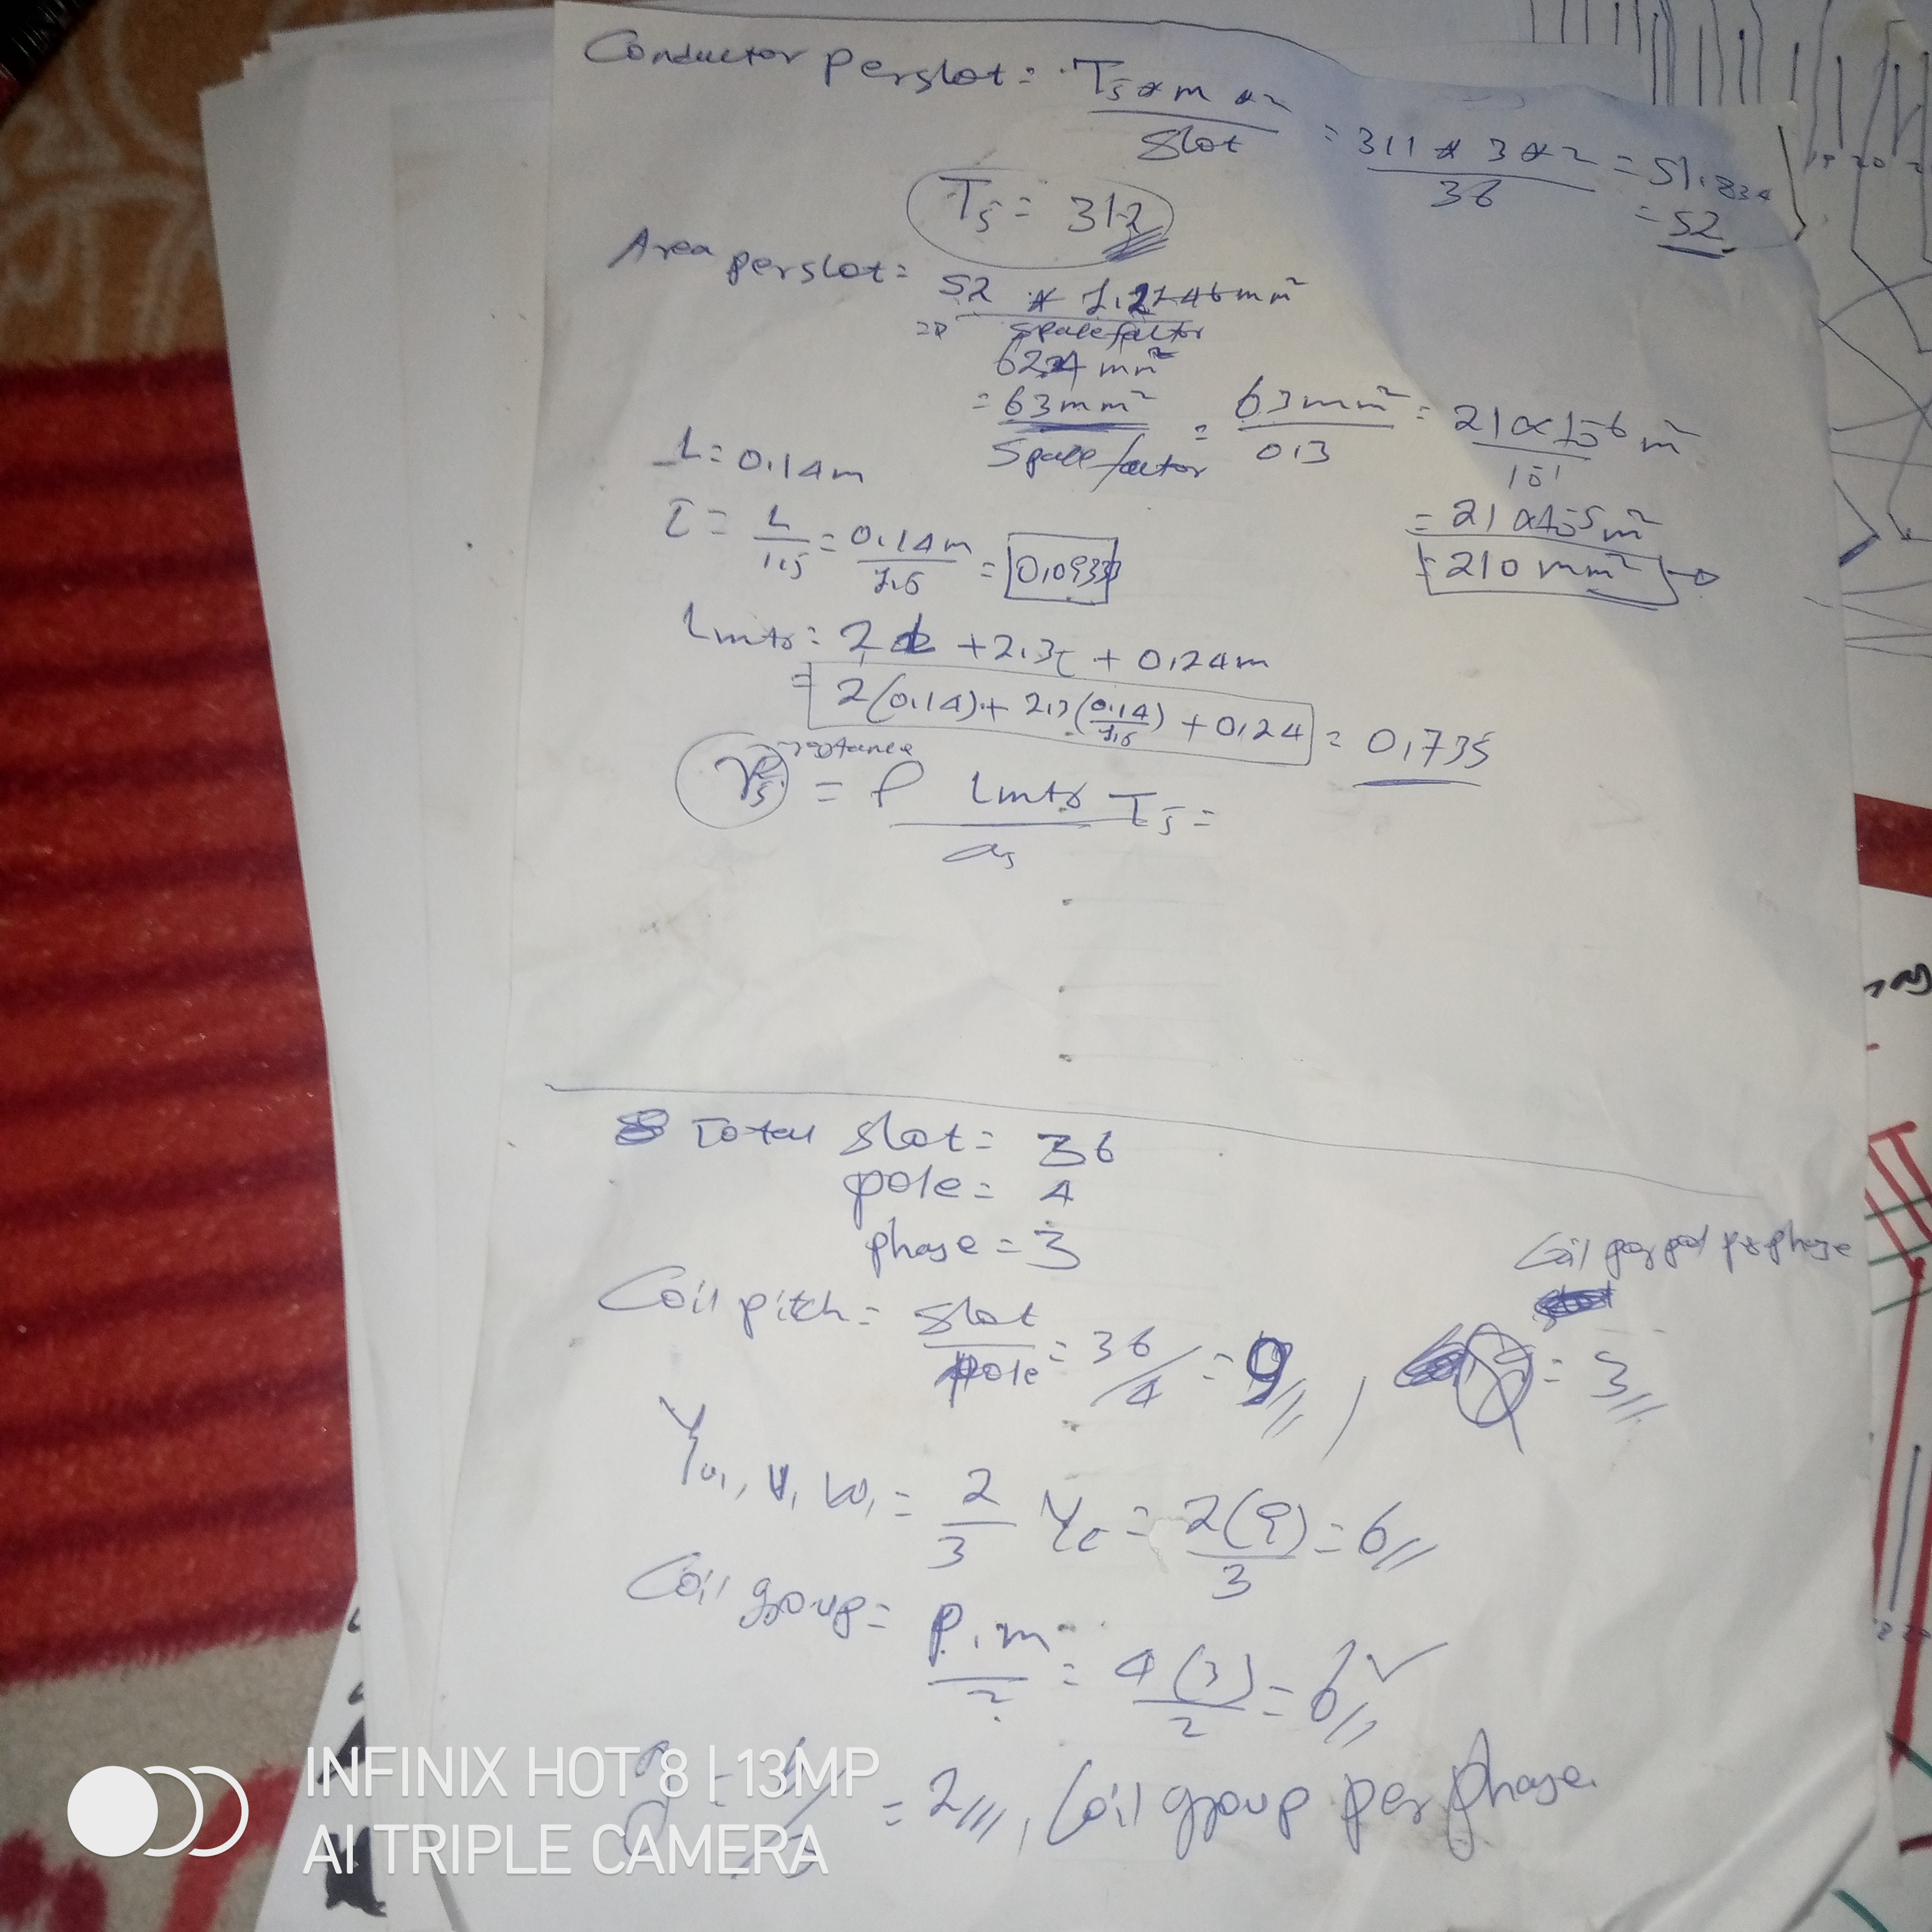 Conductor per slot = Ts * m * 2 / Slot = 311 * 3 * 2 / 36 = 51.834
= 52
Ts = 312
Area per slot = 52 * 1.2146 mm² / space factor
= 63 mm² / Space factor = 63 mm² / 0.3 = 21 × 10⁻⁶ m² / 10⁻¹
= 21 × 10⁻⁵ m²
= 210 mm²
L = 0.14m
τ = L / 1.5 = 0.14m / 1.5 = 0.0933
Lmts = 2L + 2.3τ + 0.24m
= 2(0.14) + 2.3(0.14 / 1.5) + 0.24 = 0.735
rs = ρ Lmts Ts / as =
Total slot = 36
pole = 4
phase = 3
Coil per pole per phase
Coil pitch = Slot / pole = 36/4 = 9, = 3
Yu, v, w, = 2 / 3 Yc = 2(9) / 3 = 6
Coil group = P.m / 2 = 4(3) / 2 = 6 ✓
= 2, Coil group per phase.
INFINIX HOT 8 | 13MP
AI TRIPLE CAMERA